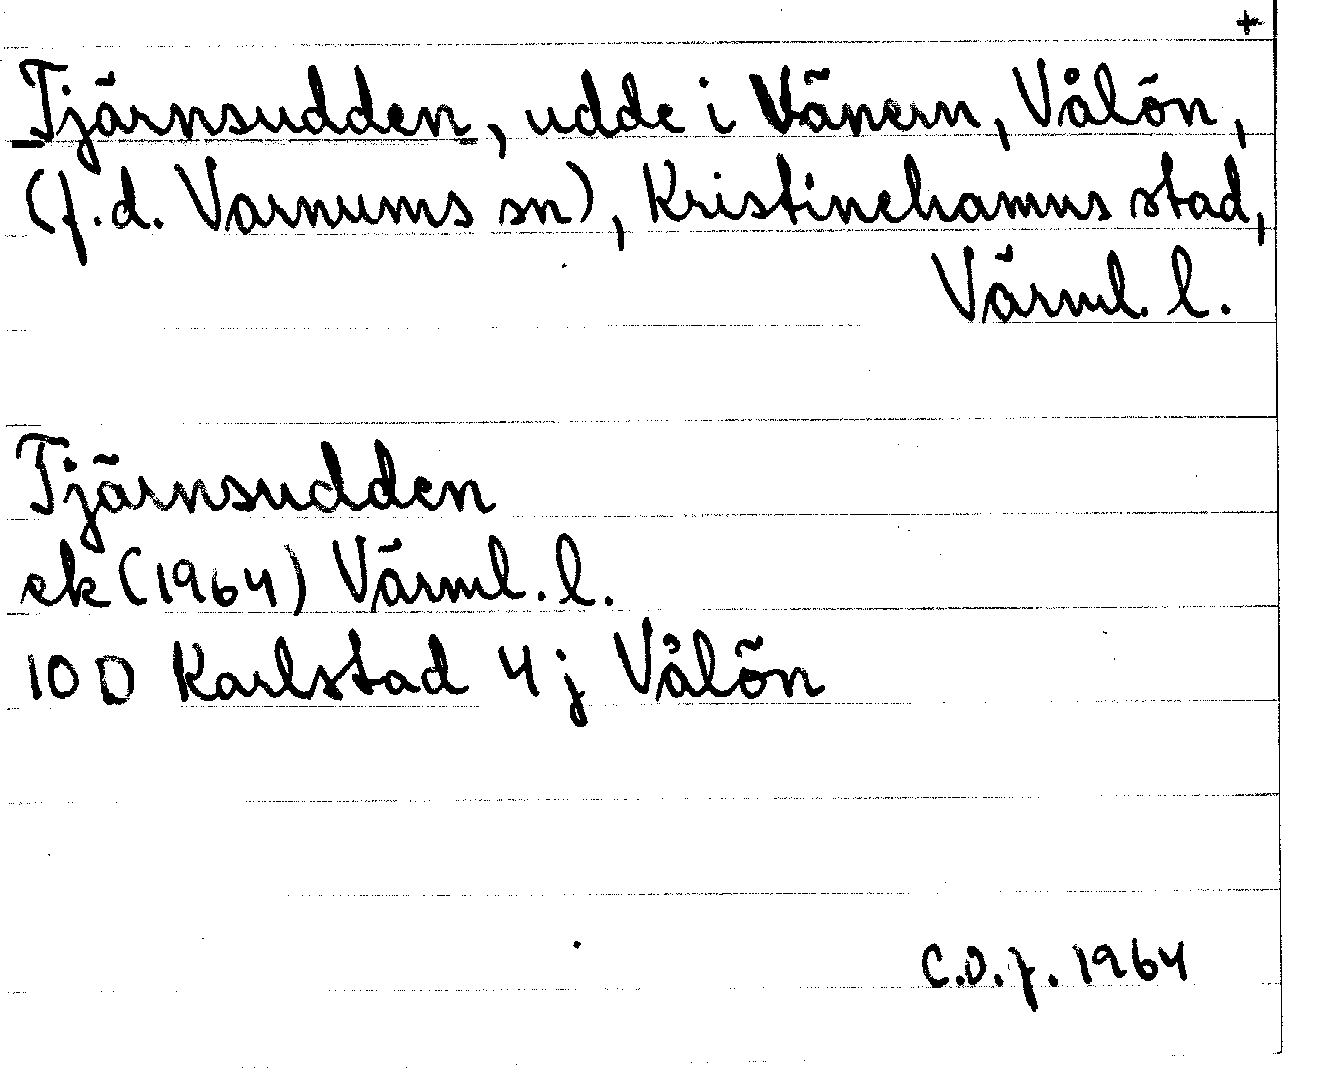 +
Tjärnsudden, udde i Vänern, Vålön,
(f.d. Varnums sn), Kristinehamns stad,
Värml. l.
Tjärnsudden
ek (1964) Värml. l.
10 D Karlstad 4j Vålön
C.O.f. 1964